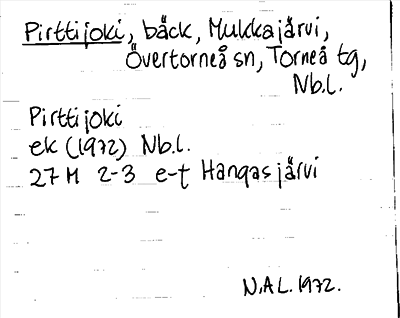 Pirttijoki, bäck, Mukkajärvi,
Övertorneå sn, Torneå tg,
Nb.l.
Pirttijoki
ek (1972) Nb.l.
27 M 2-3 e-f Hangasjärvi
N.A.L. 1972.